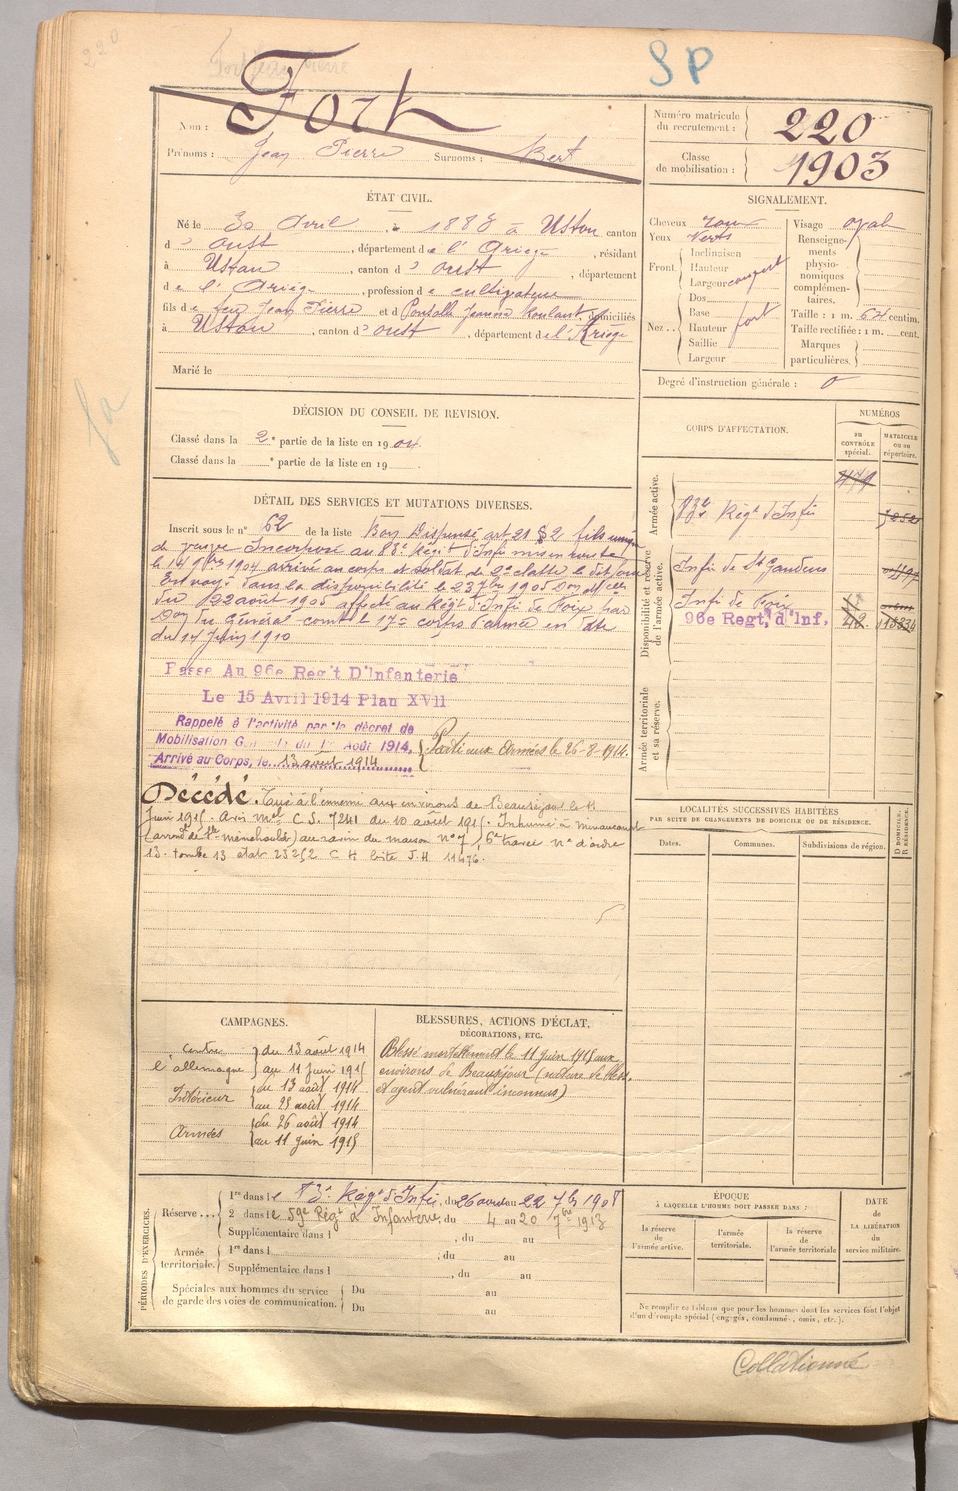 220
SP
Nom : Fort
Prénoms : Jean Pierre Surnoms : Bert
Numéro matricule du recrutement : 220
Classe de mobilisation : 1903
ÉTAT CIVIL.
Né le 30 Avril 1883 à Ustou canton
d' Oust, département de l'Ariège, résidant
à Ustou, canton d' Oust, département
de l'Ariège, profession de cultivateur
fils de feu Jean Pierre et de Jeanne domiciliés
à Ustou, canton d' Oust, département de l'Ariège
Marié le
SIGNALEMENT.
Cheveux roux
Yeux Verts
Front. Inclinaison
Hauteur
Largeur
Nez .. Dos
Base
Hauteur fort
Saillie
Largeur
Visage oval
Renseignements physionomiques complémentaires.
Taille : 1 m. 64 centim.
Taille rectifiée : 1 m. cent.
Marques particulières.
Degré d'instruction générale : 0
DÉCISION DU CONSEIL DE REVISION.
Classé dans la 2e partie de la liste en 1904
Classé dans la e partie de la liste en 19
CORPS D'AFFECTATION.
NUMÉROS
au CONTRÔLE spécial.
MATRICULE ou au répertoire.
Armée active.
83e Régt d'Infie
Disponibilité et réserve de l'armée active.
Infie de St Gaudens
Infie de Foix
96e Regt d'Inf.
Armée territoriale et sa réserve.
DÉTAIL DES SERVICES ET MUTATIONS DIVERSES.
Inscrit sous le n° 62 de la liste Bon Dispensé art 21 § 2 fils unique
de veuve Incorporé au 83e Régt d'Infie mis en route
le 14 9bre 1904 arrivé au corps et soldat de 2e classe le dit jour
Envoyé dans la disponibilité le 23 7bre 1905 Don Mlle
du 22 août 1905 affecté au Régt d'Infie de Foix par
Don du Général comt le 17e corps d'armée en date
du 14 Juin 1910
Passé Au 96e Reg't D'Infanterie
Le 15 Avril 1914 Plan XVII
Rappelé à l'activité par le décret de
Mobilisation Générale du 1er Août 1914,
Arrivé au Corps, le 13 août 1914
Parti aux Armées le 26-8-1914.
Décédé. Tué à l'ennemi aux environs de Beauséjour le 11
Juin 1915. Avis Mel C.S. 7241 du 10 août 1915. Inhumé à Minaucourt
(arrondt de Ste Ménehould) au ravin du marson n° 7, 6e travée n° d'ordre
13. tombe 13
LOCALITÉS SUCCESSIVES HABITÉES
PAR SUITE DE CHANGEMENTS DE DOMICILE OU DE RÉSIDENCE.
Dates. Communes. Subdivisions de région. D DOMICILE. R RÉSIDENCE.
CAMPAGNES.
Contre l'allemagne du 13 août 1914
au 11 juin 1915
Intérieur du 13 août 1914
au 25 août 1914
Armées du 26 août 1914
au 11 juin 1915
BLESSURES, ACTIONS D'ÉCLAT,
DÉCORATIONS, ETC.
Blessé mortellement le 11 juin 1915 aux
environs de Beauséjour (nature de bless.
et agent vulnérant inconnus)
PÉRIODES D'EXERCICES.
Réserve ... 1re dans le 83e Régt d'Infie, du 26 août au 22 7bre 1908
2e dans le 59e Régt d'Infanterie, du 4 au 20 7bre 1913
Supplémentaire dans l , du au
Armée territoriale. 1re dans l , du au
Supplémentaire dans l , du au
Spéciales aux hommes du service de garde des voies de communication. Du au
Du au
ÉPOQUE
À LAQUELLE L'HOMME DOIT PASSER DANS :
la réserve de l'armée active.
l'armée territoriale.
la réserve de l'armée territoriale
DATE de LA LIBÉRATION du service militaire.
Ne remplir ce tableau que pour les hommes dont les services font l'objet
d'un décompte spécial (engagés, condamnés, omis, etc.).
Collationné